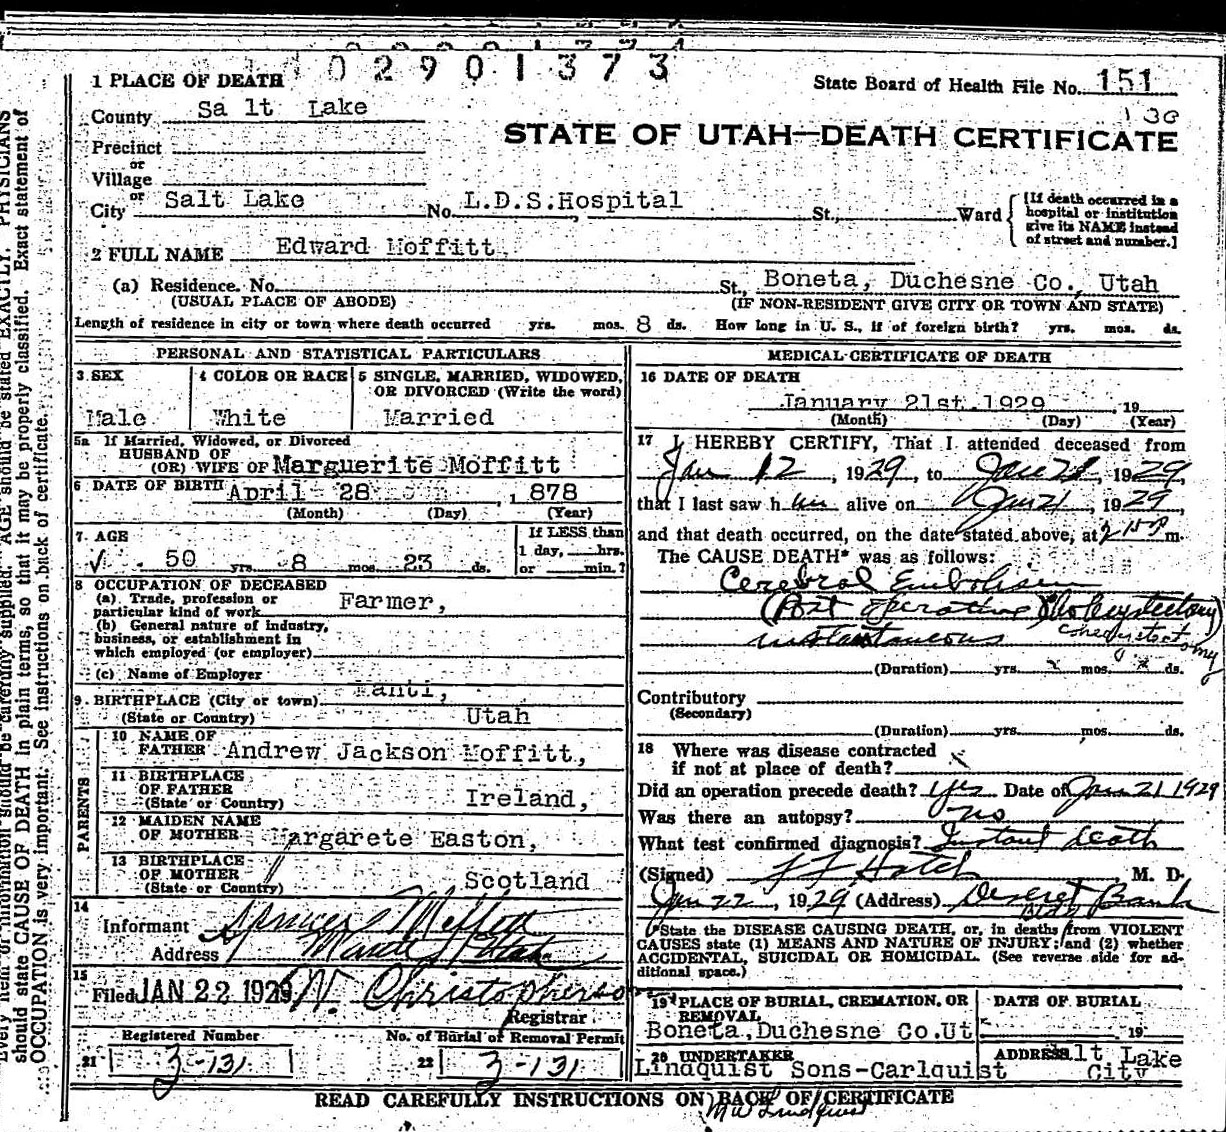 02901373
1 PLACE OF DEATH
State Board of Health File No. 151
County Sa lt Lake
130
STATE OF UTAH—DEATH CERTIFICATE
Precinct
or
Village
or
City Salt Lake No. L.D.S.Hospital St., Ward
[If death occurred in a hospital or institution give its NAME instead of street and number.]
2 FULL NAME Edward Moffitt,
(a) Residence. No. St., Boneta, Duchesne Co., Utah
(USUAL PLACE OF ABODE) (IF NON-RESIDENT GIVE CITY OR TOWN AND STATE)
Length of residence in city or town where death occurred yrs. mos. 8 ds. How long in U. S., if of foreign birth? yrs. mos. ds.
PERSONAL AND STATISTICAL PARTICULARS
3 SEX
Male
4 COLOR OR RACE
White
5 SINGLE, MARRIED, WIDOWED, OR DIVORCED (Write the word)
Married
5a If Married, Widowed, or Divorced
HUSBAND OF
(OR) WIFE OF Marguerite Moffitt
6 DATE OF BIRTH April 28 , 1878
(Month) (Day) (Year)
7. AGE
50 yrs. 8 mos. 23 ds.
If LESS than
1 day, hrs.
or min.?
8 OCCUPATION OF DECEASED
(a) Trade, profession or
particular kind of work Farmer,
(b) General nature of industry,
business, or establishment in
which employed (or employer)
(c) Name of Employer
9. BIRTHPLACE (City or town) Manti,
(State or Country) Utah
PARENTS
10 NAME OF
FATHER Andrew Jackson Moffitt,
11 BIRTHPLACE
OF FATHER
(State or Country) Ireland,
12 MAIDEN NAME
OF MOTHER Margarete Easton,
13 BIRTHPLACE
OF MOTHER
(State or Country) Scotland
14
Informant Spencer Moffitt
Address Manti Utah
15
Filed JAN 22 1929 W. Christopherso
Registrar
Registered Number No. of Burial or Removal Permit
21 3-131 22 3-131
MEDICAL CERTIFICATE OF DEATH
16 DATE OF DEATH
January 21st.1929 , 19
(Month) (Day) (Year)
17 I HEREBY CERTIFY, That I attended deceased from
Jan 12, 1929, to Jan 21, 1929,
that I last saw h im alive on Jan 21, 1929,
and that death occurred, on the date stated above, at m.
The CAUSE DEATH* was as follows:
Cerebral Embolism
(Post operative Cholecystectomy)
instantaneous
(Duration) yrs. mos. ds.
Contributory
(Secondary)
(Duration) yrs. mos. ds.
18 Where was disease contracted
if not at place of death? x
Did an operation precede death? yes Date of Jan 21 1929
Was there an autopsy? no
What test confirmed diagnosis? Instant death
(Signed) Hatch M. D.
Jan 22, 1929 (Address) Deseret Bank
Bldg
*State the DISEASE CAUSING DEATH, or, in deaths from VIOLENT
CAUSES state (1) MEANS AND NATURE OF INJURY; and (2) whether
ACCIDENTAL, SUICIDAL OR HOMICIDAL. (See reverse side for ad-
ditional space.)
19 PLACE OF BURIAL, CREMATION, OR
REMOVAL
Boneta,Duchesne Co.Ut
DATE OF BURIAL
19
20 UNDERTAKER
Lindquist Sons-Carlquist
ADDRESS lt Lake
City
READ CAREFULLY INSTRUCTIONS ON BACK OF CERTIFICATE
should state CAUSE OF DEATH in plain terms, so that it may be properly classified. Exact statement of
OCCUPATION is very important. See instructions on back of certificate.